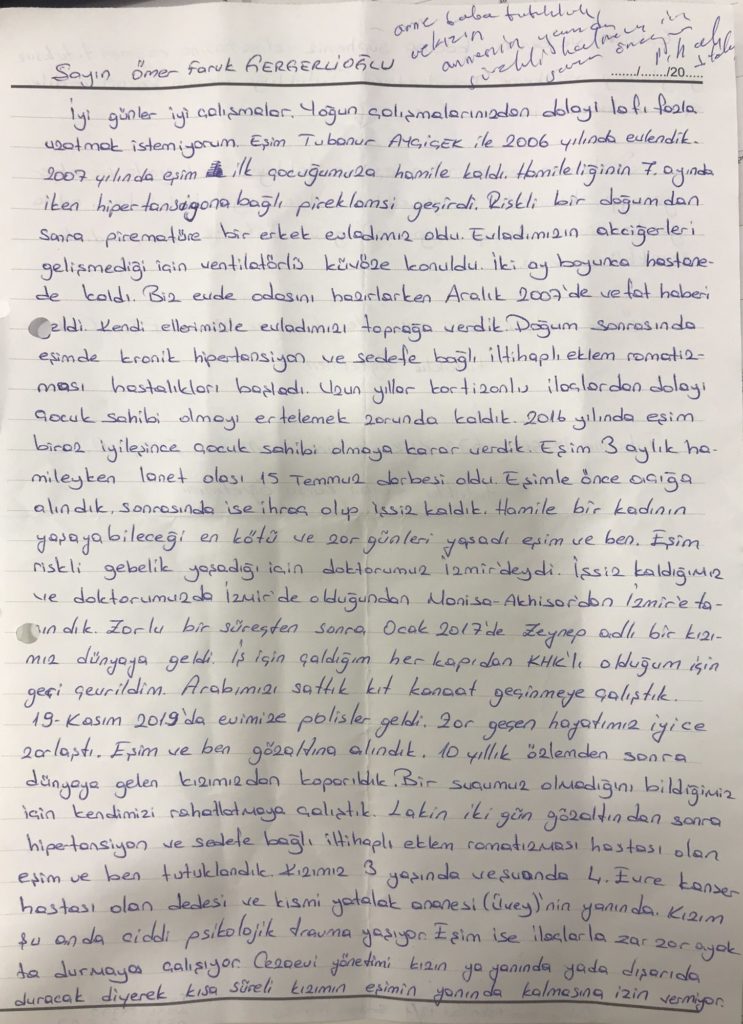 anne baba tutuklu
ve kızın
annenin yanında
sürekli kalması
Sayın Ömer Faruk GERGERLİOĞLU
....../....../20.....
İyi günler iyi çalışmalar. Yoğun çalışmalarınızdan dolayı lafı fazla
uzatmak istemiyorum. Eşim Tubanur AYÇİÇEK ile 2006 yılında evlendik.
2007 yılında eşim ilk çocuğumuza hamile kaldı. Hamileliğinin 7. ayında
iken hipertansiyona bağlı pireklamsi geçirdi. Riskli bir doğumdan
sonra pirematüre bir erkek evladımız oldu. Evladımızın akciğerleri
gelişmediği için ventilatörlü küvöze konuldu. İki ay boyunca hastane-
de kaldı. Biz evde odasını hazırlarken Aralık 2007'de vefat haberi
eldi. Kendi ellerimizle evladımızı toprağa verdik. Doğum sonrasında
eşimde kronik hipertansiyon ve sedefe bağlı iltihaplı eklem romatiz-
ması hastalıkları başladı. Uzun yıllar kortizonlu ilaçlardan dolayı
çocuk sahibi olmayı ertelemek zorunda kaldık. 2016 yılında eşim
biraz iyileşince çocuk sahibi olmaya karar verdik. Eşim 3 aylık ha-
mileyken lanet olası 15 Temmuz darbesi oldu. Eşimle önce açığa
alındık, sonrasında ise ihraç olup işsiz kaldık. Hamile bir kadının
yaşayabileceği en kötü ve zor günleri yaşadı eşim ve ben. Eşim
riskli gebelik yaşadığı için doktorumuz İzmir'deydi. İşsiz kaldığımız
ve doktorumuzda İzmir'de olduğundan Manisa-Akhisar'dan İzmir'e ta-
ındık. Zorlu bir süreçten sonra Ocak 2017'de Zeynep adlı bir kızı-
mız dünyaya geldi. İş için çaldığım her kapıdan KHK'lı olduğum için
geri çevrildim. Arabamızı sattık kıt kanaat geçinmeye çalıştık.
19-Kasım 2019'da evimize polisler geldi. Zor geçen hayatımız iyice
zorlaştı. Eşim ve ben gözaltına alındık. 10 yıllık özlemden sonra
dünyaya gelen kızımızdan koparıldık. Bir suçumuz olmadığını bildiğimiz
için kendimizi rahatlatmaya çalıştık. Lakin iki gün gözaltından sonra
hipertansiyon ve sedefe bağlı iltihaplı eklem romatizması hastası olan
eşim ve ben tutuklandık. Kızımız 3 yaşında ve şuanda 4. Evre kanser
hastası olan dedesi ve kısmi yatalak ananesi (Üvey)'nin yanında. Kızım
şu anda ciddi psikolojik travma yaşıyor. Eşim ise ilaçlarla zar zor ayak
ta durmaya çalışıyor. Cezaevi yönetimi kızın ya yanında yada dışarıda
duracak diyerek kısa süreli kızımın eşimin yanında kalmasına izin vermiyor.